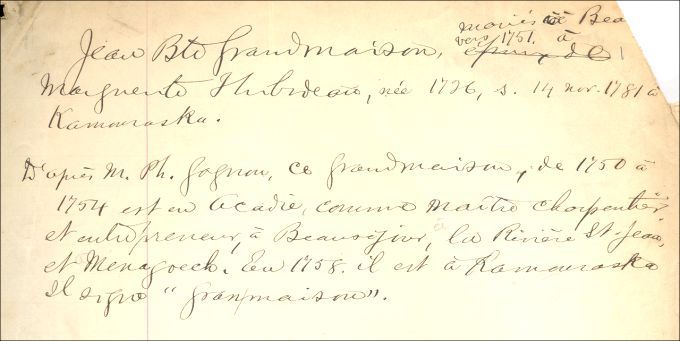 mariés à Beau
vers 1751. à
Jean Bte Grandmaison, époux de
Marguerite Thibodeau, née 1726, s. 14 nov. 1781 à
Kamouraska.
D'après M. Ph. Gagnon, ce Grandmaison, de 1750 à
1754 est en Acadie, comme maître charpentier
et entrepreneur, à Beauséjour, à la Rivière St-Jean,
et Menagoech. En 1758. il est à Kamouraska
Il signe "Granmaison".